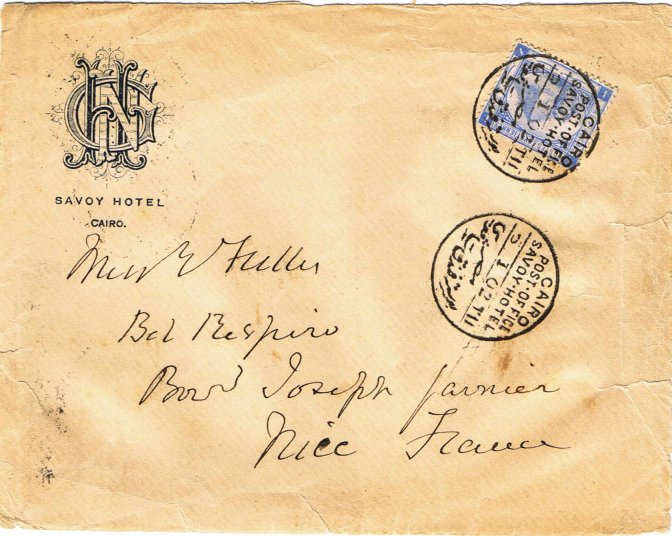 SAVOY HOTEL
CAIRO.
CAIRO
POST·OFFICE
SAVOY·HOTEL
CAIRO
POST·OFFICE
SAVOY·HOTEL
5 I 02 T11
Miss
Bel Respiro
Bovd Joseph Garnier
Nice France